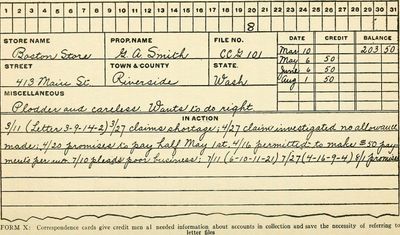 1 2 3 4 5 6 7 8 9 10 11 12 13 14 15 16 17 18 19 20 21 22 23 24 25 26 27 28 29 30 31
8
STORE NAME PROP. NAME FILE NO. DATE CREDIT BALANCE
Boston Store G A Smith CCG 101 Mar 10 203 50
STREET TOWN & COUNTY STATE. May 6 50
413 Main St. Riverside Wash June 6 50
MISCELLANEOUS Aug 1 50
Plodder and careless. Wants to do right
IN ACTION
3/11 (Letter 3-9-14-2) 3/27 claims shortage; 4/27 claim investigated no allowance
made; 4/20 promises to pay half May 1st. 4/16 permitted to make $50 pay-
ments per mo. 7/10 pleads poor business; 7/11 (6-10-11-21) 7/27 (4-16-9-4) 8/1 promises
FORM X: Correspondence cards give credit men all needed information about accounts in collection and save the necessity of referring to
letter files